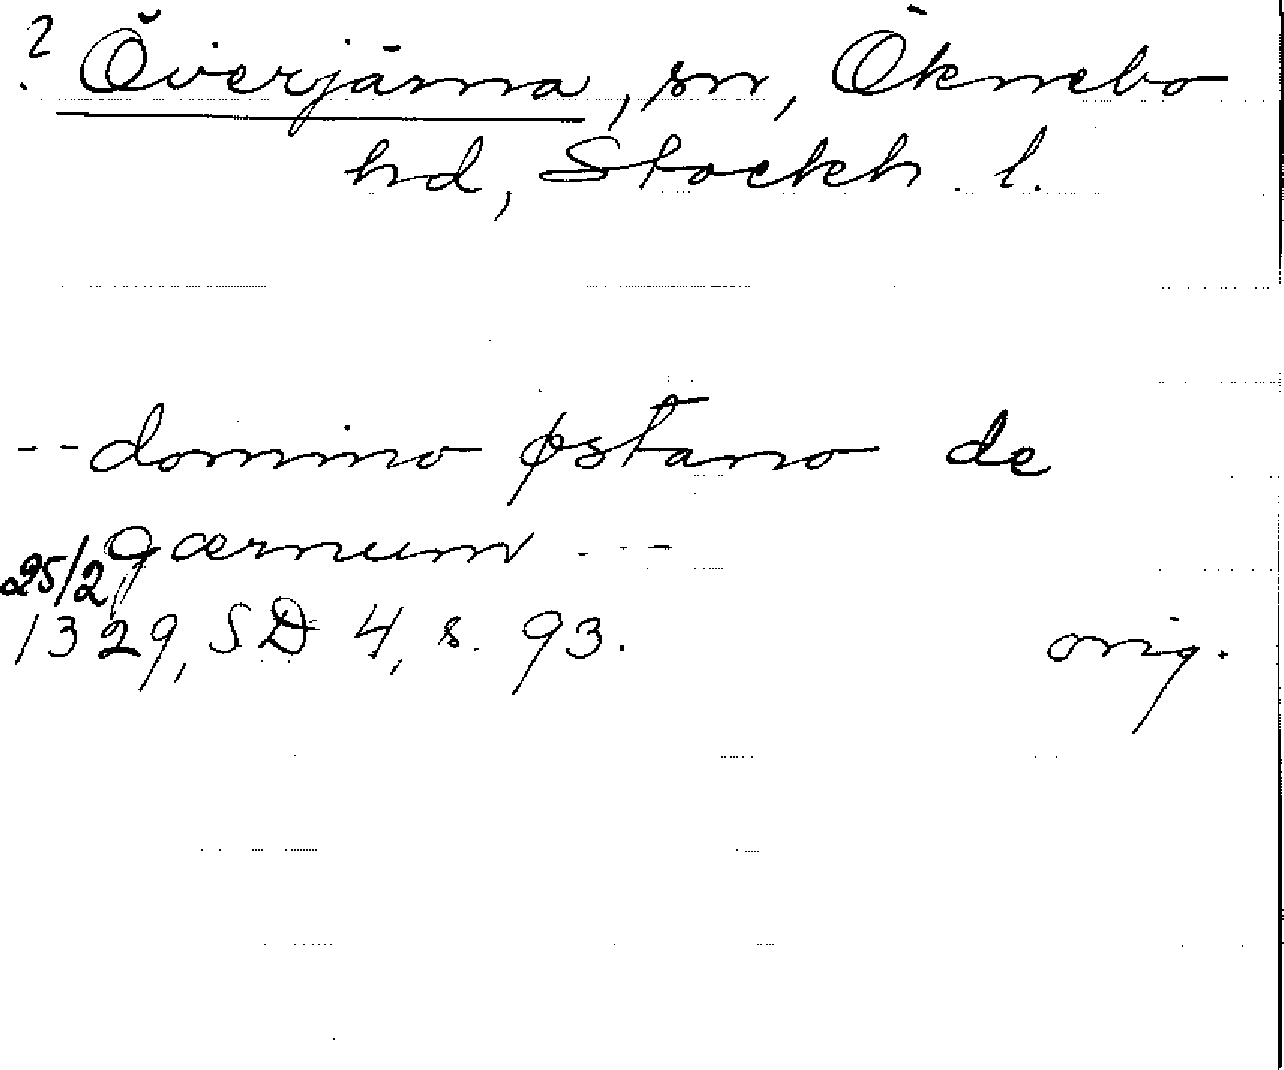 ? Överjärna, sn, Öknebo
hd, Stockh. l.
-- domino østano de
gærnum ---
25/2
1329, SD 4, s. 93. orig.